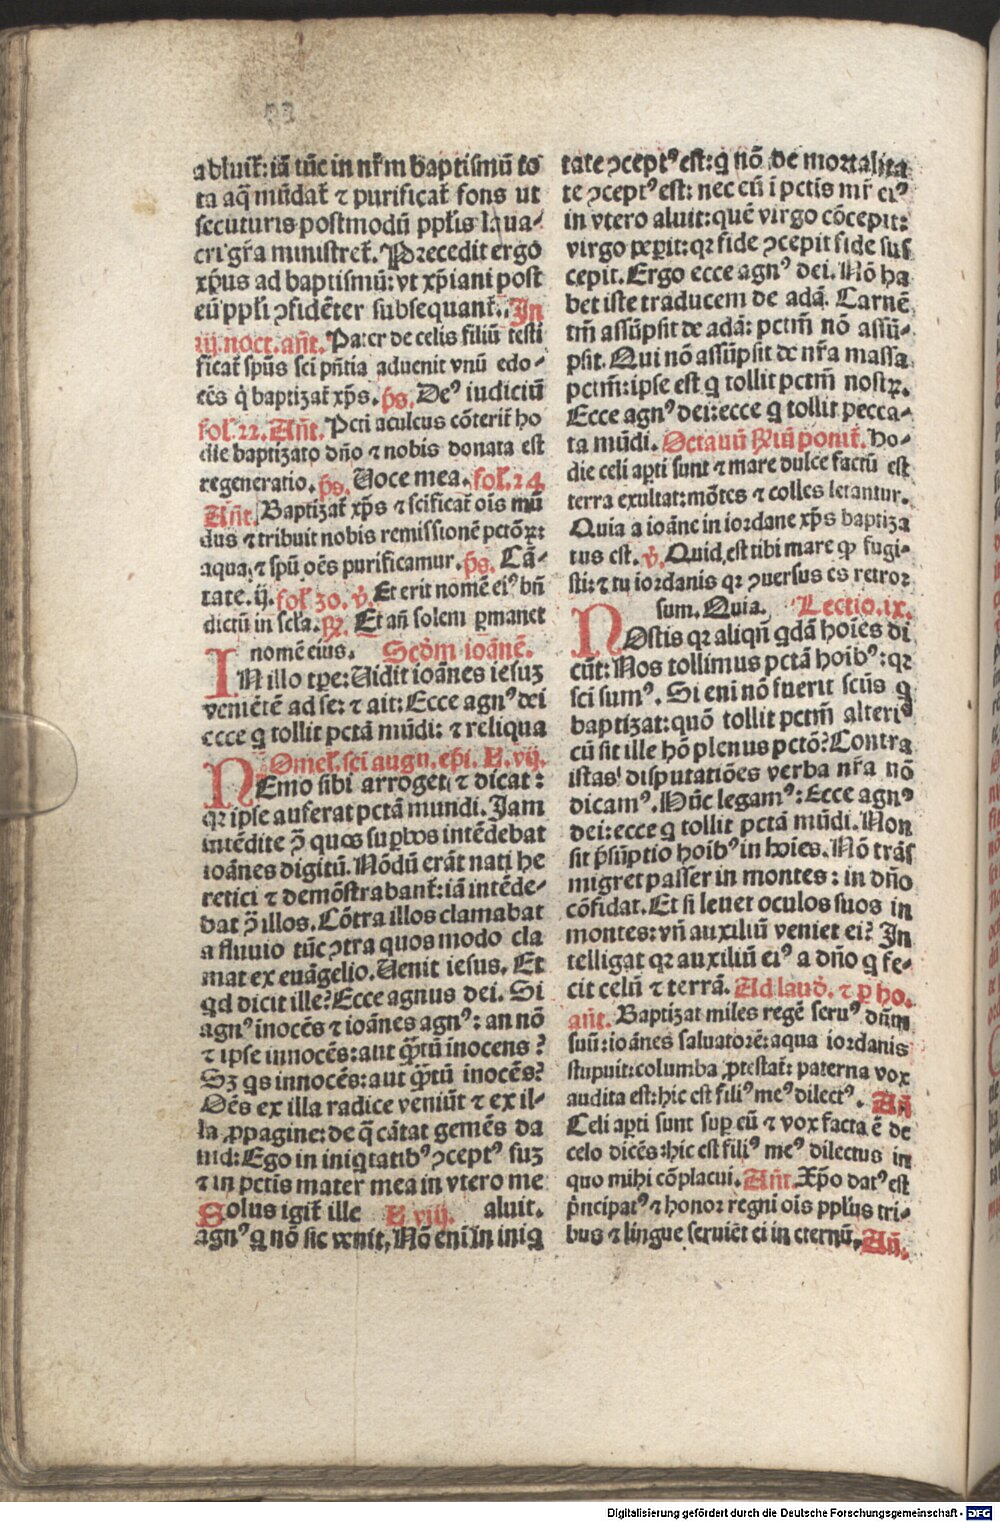 abluit̃: iã tũc in nr̃m baptismũ to
ta aq̃ mũdat̃ ⁊ purificat̃ fons ut
secuturis postmodũ pp̃lis laua-
cri gr̃a ministret̃. Precedit ergo
xp̃us ad baptismũ: vt xp̃iani post
eũ pp̃li ꝯfidẽter subsequant̃. In
iij. noct. añt. Pater de celis filiũ testi
ficat̃ sp̃us sc̃i p̃ñtia aduenit vnũ edo-
cẽs q̇ baptizat̃ xp̃s. p̃s. Deꝰ iudiciũ
fol. 22. Añt. Pct̃i aculeus cõterit̃ ho
die baptizato dño ⁊ nobis donata est
regeneratio. p̃s. Uoce mea. fol. 24
Añt. Baptizat̃ xp̃s ⁊ sc̃ificat̃ oĩs mũ
dus ⁊ tribuit nobis remissionẽ pctõꝝ:
aqua ⁊ sp̃u oẽs purificamur. p̃s. Cã-
tate. ij. fol. 30. v̇. Et erit nomẽ eiꝰ bñ
dictũ in sc̃la. ꝶ. Et añ solem ꝑmanet
nomẽ eius. Scd̃m ioãnẽ.
IN illo tp̃e: Uidit ioãnes iesuꝫ
veniẽtẽ ad se: ⁊ ait: Ecce agnꝰ dei
ecce q̇ tollit pctã mũdi: ⁊ reliqua
Omel. sc̃i augu. ep̃i. L. vij.
NEmo sibi arroget ⁊ dicat:
qꝛ ip̃se auferat pctã mundi. Jam
intẽdite ꝯ̃ quos suꝑbos intẽdebat
ioãnes digitũ. Nõdũ erãt nati he
retici ⁊ demõstrabant̃: iã intẽde-
bat ꝯ̃ illos. Cõtra illos clamabat
a fluuio tũc ꝯtra quos modo cla
mat ex euãgelio. Uenit iesus. Et
qd dicit ille? Ecce agnus dei. Si
agnꝰ inocẽs ⁊ ioãnes agnꝰ: an nõ
⁊ ip̃se innocẽs: aut q̃tũ inocens?
Sꝫ qs innocẽs: aut q̃tũ inocẽs?
Oẽs ex illa radice veniũt ⁊ ex il-
la ꝓpagine: de q̃ cãtat gemẽs da
uid: Ego in iniqtatibꝰ ꝯceptꝰ suꝫ
⁊ in pctis mater mea in vtero me
Solus igit̃ ille L viij. aluit.
agnꝰ q̇ nõ sic venit. Nõ eni in iniq
tate ꝯceptꝰ est: q̇ nõ de mortalita
te ꝯceptꝰ est: nec eũ i pctis mr̃ eiꝰ
in vtero aluit: quẽ virgo cõcepit:
virgo peꝑit: qꝛ fide ꝯcepit fide sus
cepit. Ergo ecce agnꝰ dei. Nõ ha
bet iste traducem de adã. Carnẽ
tm̃ assũpsit de adã: pctm̃ nõ assũ-
psit. Qui nõ assũpsit de nr̃a massa
pctm̃: ipse est q̇ tollit pctm̃ nostꝝ.
Ecce agnꝰ dei: ecce q̇ tollit pecca-
ta mũdi. Octauũ ꝶiũ ponit̃. Ho-
die celi aꝑti sunt ⁊ mare dulce factũ est
terra exultat: mõtes ⁊ colles letantur.
Quia a ioãne in iordane xp̃s baptiza
tus est. v̇. Quid est tibi mare ꝙ fugi-
sti: ⁊ tu iordanis qꝛ ꝯuersus es retror
sum. Quia. Lectio. ix.
NOstis qꝛ aliqñ qdã hoĩes di
cũt: Nos tollimus pctã hoibꝰ: qꝛ
sci sumꝰ. Si eni nõ fuerit sc̃us q̇
baptizat: quõ tollit pctm̃ alteriꝰ
cũ sit ille hõ plenus pctõ? Contra
istas disputatiões verba nr̃a nõ
dicamꝰ. Hũc legamꝰ: Ecce agnꝰ
dei: ecce q̇ tollit pctã mũdi. Non
sit p̃sũptio hoibꝰ in hoies. Nõ trãs
migret passer in montes: in dño
cõfidat. Et si leuet oculos suos in
montes: vñ auxiliũ veniet ei? In
telligat qꝛ auxiliũ eiꝰ a dño q̇ fe-
cit celũ ⁊ terrã. Ad laud̃. ⁊ ꝑ ho.
añt. Baptizat miles regẽ seruꝰ dñm
suũ: ioãnes saluatorẽ: aqua iordanis
stupuit: columba ꝓtestat̃: paterna vox
audita est: hic est filiꝰ meꝰ dilectꝰ. Añ
Celi aꝑti sunt suꝑ eũ ⁊ vox facta ẽ de
celo dicẽs: hic est filiꝰ meꝰ dilectus in
quo mihi cõplacui. Añt. Xp̃o datꝰ est
p̃ncipatꝰ ⁊ honor regni oĩs pp̃lus tri-
bus ⁊ lingue seruiẽt ei in eternũ. Añ.
Digitalisierung gefördert durch die Deutsche Forschungsgemeinschaft - DFG